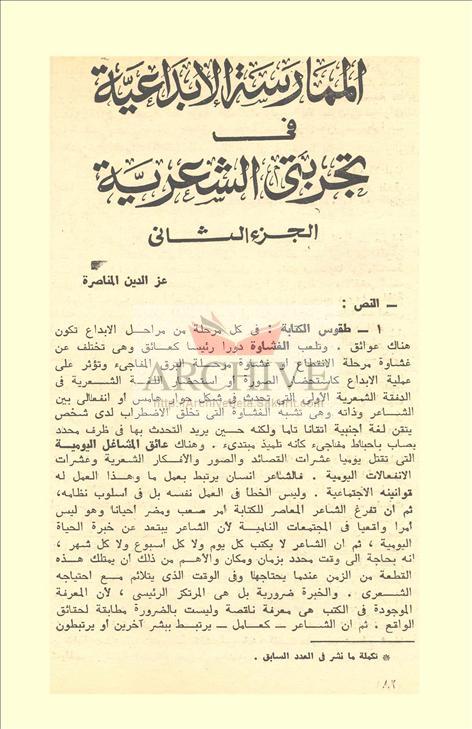 الممارسة الإبداعية
فى
تجربتى الشعرية
الجزء الثانى
عز الدين المناصرة
ــ النص :
١ ــ طقوس الكتابة : فى كل مرحلة من مراحل الابداع تكون
هناك عوائق . وتلعب الغشاوة دورا رئيسا كعائق وهى تختلف عن
غشاوة مرحلة الانقطاع او غشاوة مرحلة البرق المفاجىء وتؤثر على
عملية الابداع كاستحضار الصورة أو استحضار الشعرية فى
الدفقة الشعرية الأولى التى تحدث فى شكل حوار هامس او انفعالى بين
الشاعر وذاته وهى تشبه الغشاوة التى تخلق الاضطراب لدى شخص
يتقن لغة أجنبية اتقانا تاما ولكنه حين يريد التحدث بها فى ظرف محدد
يصاب باحباط مفاجىء كأنه تلميذ مبتدىء . وهناك عائق المشاغل اليومية
التى تقتل يوميا عشرات القصائد والصور والأفكار الشعرية وعشرات
الانفعالات اليومية . فالشاعر انسان يرتبط بعمل ما وهذا العمل له
قوانينه الاجتماعية . وليس الخطأ فى العمل نفسه بل فى اسلوب نظامه،
ثم أن تفرغ الشاعر المعاصر للكتابة أمر صعب ومضر أحيانا وهو ليس
أمرا واقعيا فى المجتمعات النامية لأن الشاعر يبتعد عن خبرة الحياة
اليومية ، ثم ان الشاعر لا يكتب كل يوم ولا كل اسبوع ولا كل شهر ،
انه بحاجة الى وقت محدد بزمان ومكان والأهم من ذلك أن يمتلك هذه
القطعة من الزمن عندما يحتاجها وفى الوقت الذى يتلائم مع احتياجه
الشعرى . والخبرة ضرورية بل هى المرتكز الرئيسى ، لأن المعرفة
الموجودة فى الكتب هى معرفة ناقصة وليست بالضرورة مطابقة لحقائق
الواقع . ثم ان الشاعر ــ كعامل ــ يرتبط ببشر آخرين أو يرتبطون
* تكملة ما نشر فى العدد السابق .
ARCHIVE